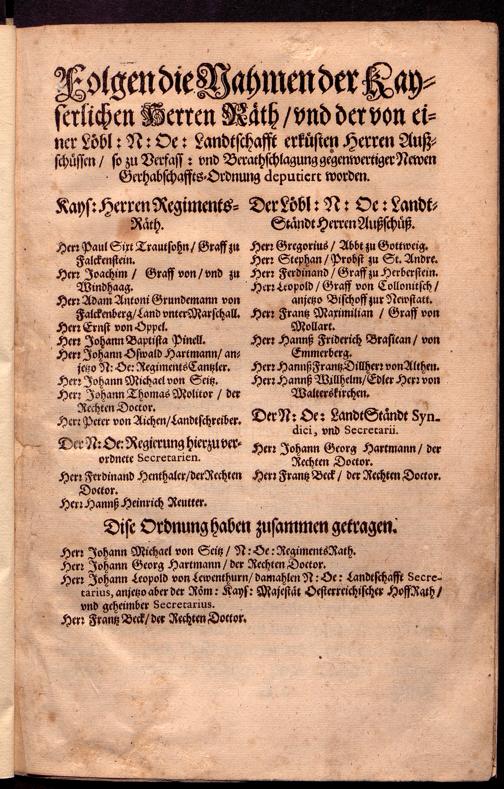 Folgen die Nahmen der Kay-
serlichen Herren Räth / vnd der von ei-
ner Löbl: N: Oe: Landtschafft erküsten Herren Auß-
schüssen / so zu Verfass: vnd Berathschlagung gegenwertiger Newen
Gerhabschaffts-Ordnung deputiert worden.
Kays: Herren Regiments-
Räth.
Herr Paul Sixt Trautsohn / Graff zu
Falckenstein.
Herr Joachim / Graff von / vnd zu
Windhaag.
Herr Adam Antoni Grundemann von
Falckenberg / Land vnter Marschall.
Herr Ernst von Oppel.
Herr Johann Baptista Pinell.
Herr Johann Oswald Hartmann / an-
jetzo N: Oe: Regiments Cantzler.
Herr Johann Michael von Seitz.
Herr Johann Thomas Molitor / der
Rechten Doctor.
Herr Peter von Aichen / Landtschreiber.
Der N: Oe: Regierung hierzu ver-
ordnete Secretarien.
Herr Ferdinand Henthaler / der Rechten
Doctor.
Herr Hannß Heinrich Reutter.
Der Löbl: N: Oe: Landt-
Ständt Herren Außschüß.
Herr Gregorius / Abbt zu Gottweig.
Herr Stephan / Probst zu St. Andre.
Herr Ferdinand / Graff zu Herberstein.
Herr Leopold / Graff von Collonitsch /
anjetzo Bischoff zur Newstatt.
Herr Frantz Maximilian / Graff von
Mollart.
Herr Hannß Friderich Brasican / von
Emmerberg.
Herr Hannß Frantz Dillherr von Althen.
Herr Hannß Willhelm / Edler Herr von
Walterskirchen.
Der N: Oe: Landt Ständt Syn-
dici, vnd Secretarii.
Herr Johann Georg Hartmann / der
Rechten Doctor.
Herr Frantz Beck / der Rechten Doctor.
Dise Ordnung haben zusammen getragen.
Herr Johann Michael von Seitz / N: Oe: Regiments Rath.
Herr Johann Georg Hartmann / der Rechten Doctor.
Herr Johann Leopold von Lewenthurn / damahlen N: Oe: Landtschafft Secre-
tarius, anjetzo aber der Röm: Kays: Majestät Oesterreichischer Hoff Rath /
vnd geheimber Secretarius.
Herr Frantz Beck / der Rechten Doctor.